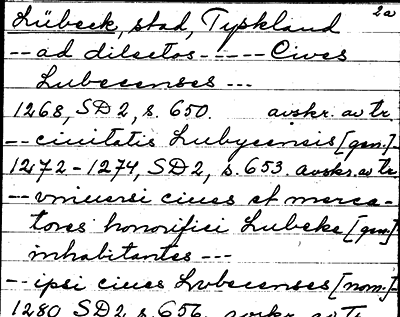 2a
Lübeck, stad, Tyskland
-- ad dilectos ----- Cives
Lubecenses ---
1268, SD 2, s. 650. avskr. av tr.
-- ciuitatis Lubycensis [gen.] -
1272-1274, SD 2, s. 653. avskr. av tr.
-- vniuersi ciues et merca-
tores honorifici Lubeke [gen.]
inhabitantes ---
-- ipsi ciues Lvbecenses [nom.] -
1280 SD 2 s. 656. avskr. av tr.